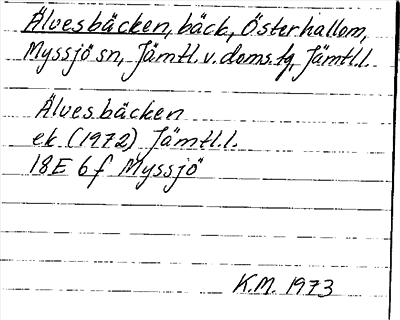 Älvesbäcken, bäck, Österhallom,
Myssjö sn, Jämtl. v. doms.tg, Jämtl.l.
Älvesbäcken
ek (1972) Jämtl.l.
18E 6f Myssjö
K.M. 1973